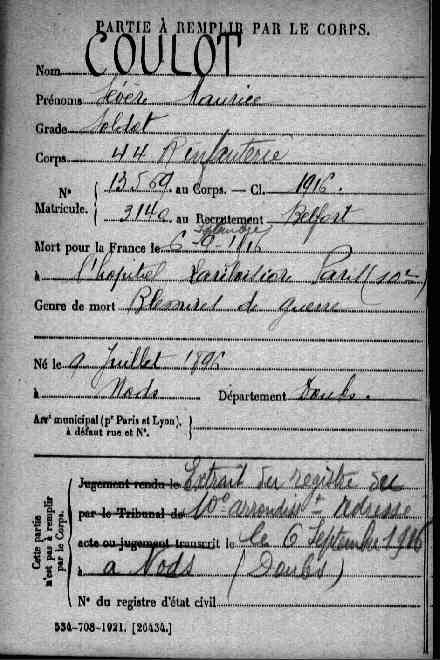 PARTIE À REMPLIR PAR LE CORPS.
COULOT
Nom
Prénoms Sévère Maurice
Grade Soldat
Corps 44 d'infanterie
N° 13569 au Corps. — Cl. 1916.
Matricule. 3140 au Recrutement Belfort
Mort pour la France le 6-9-1916
à l'hopital Lariboisière Paris (10me)
Genre de mort Blessures de guerre
Né le 9 Juillet 1896
à Nods Département Doubs.
Arrt municipal (pr Paris et Lyon),
à défaut rue et N°.
Cette partie
n'est pas à remplir
par le Corps.
Jugement rendu le Extrait du registre du
par le Tribunal de 10e arrondisst
acte ou jugement transcrit le le 6 Septembre 1916
à à Nods (Doubs)
N° du registre d'état civil
534-708-1921. [26434.]